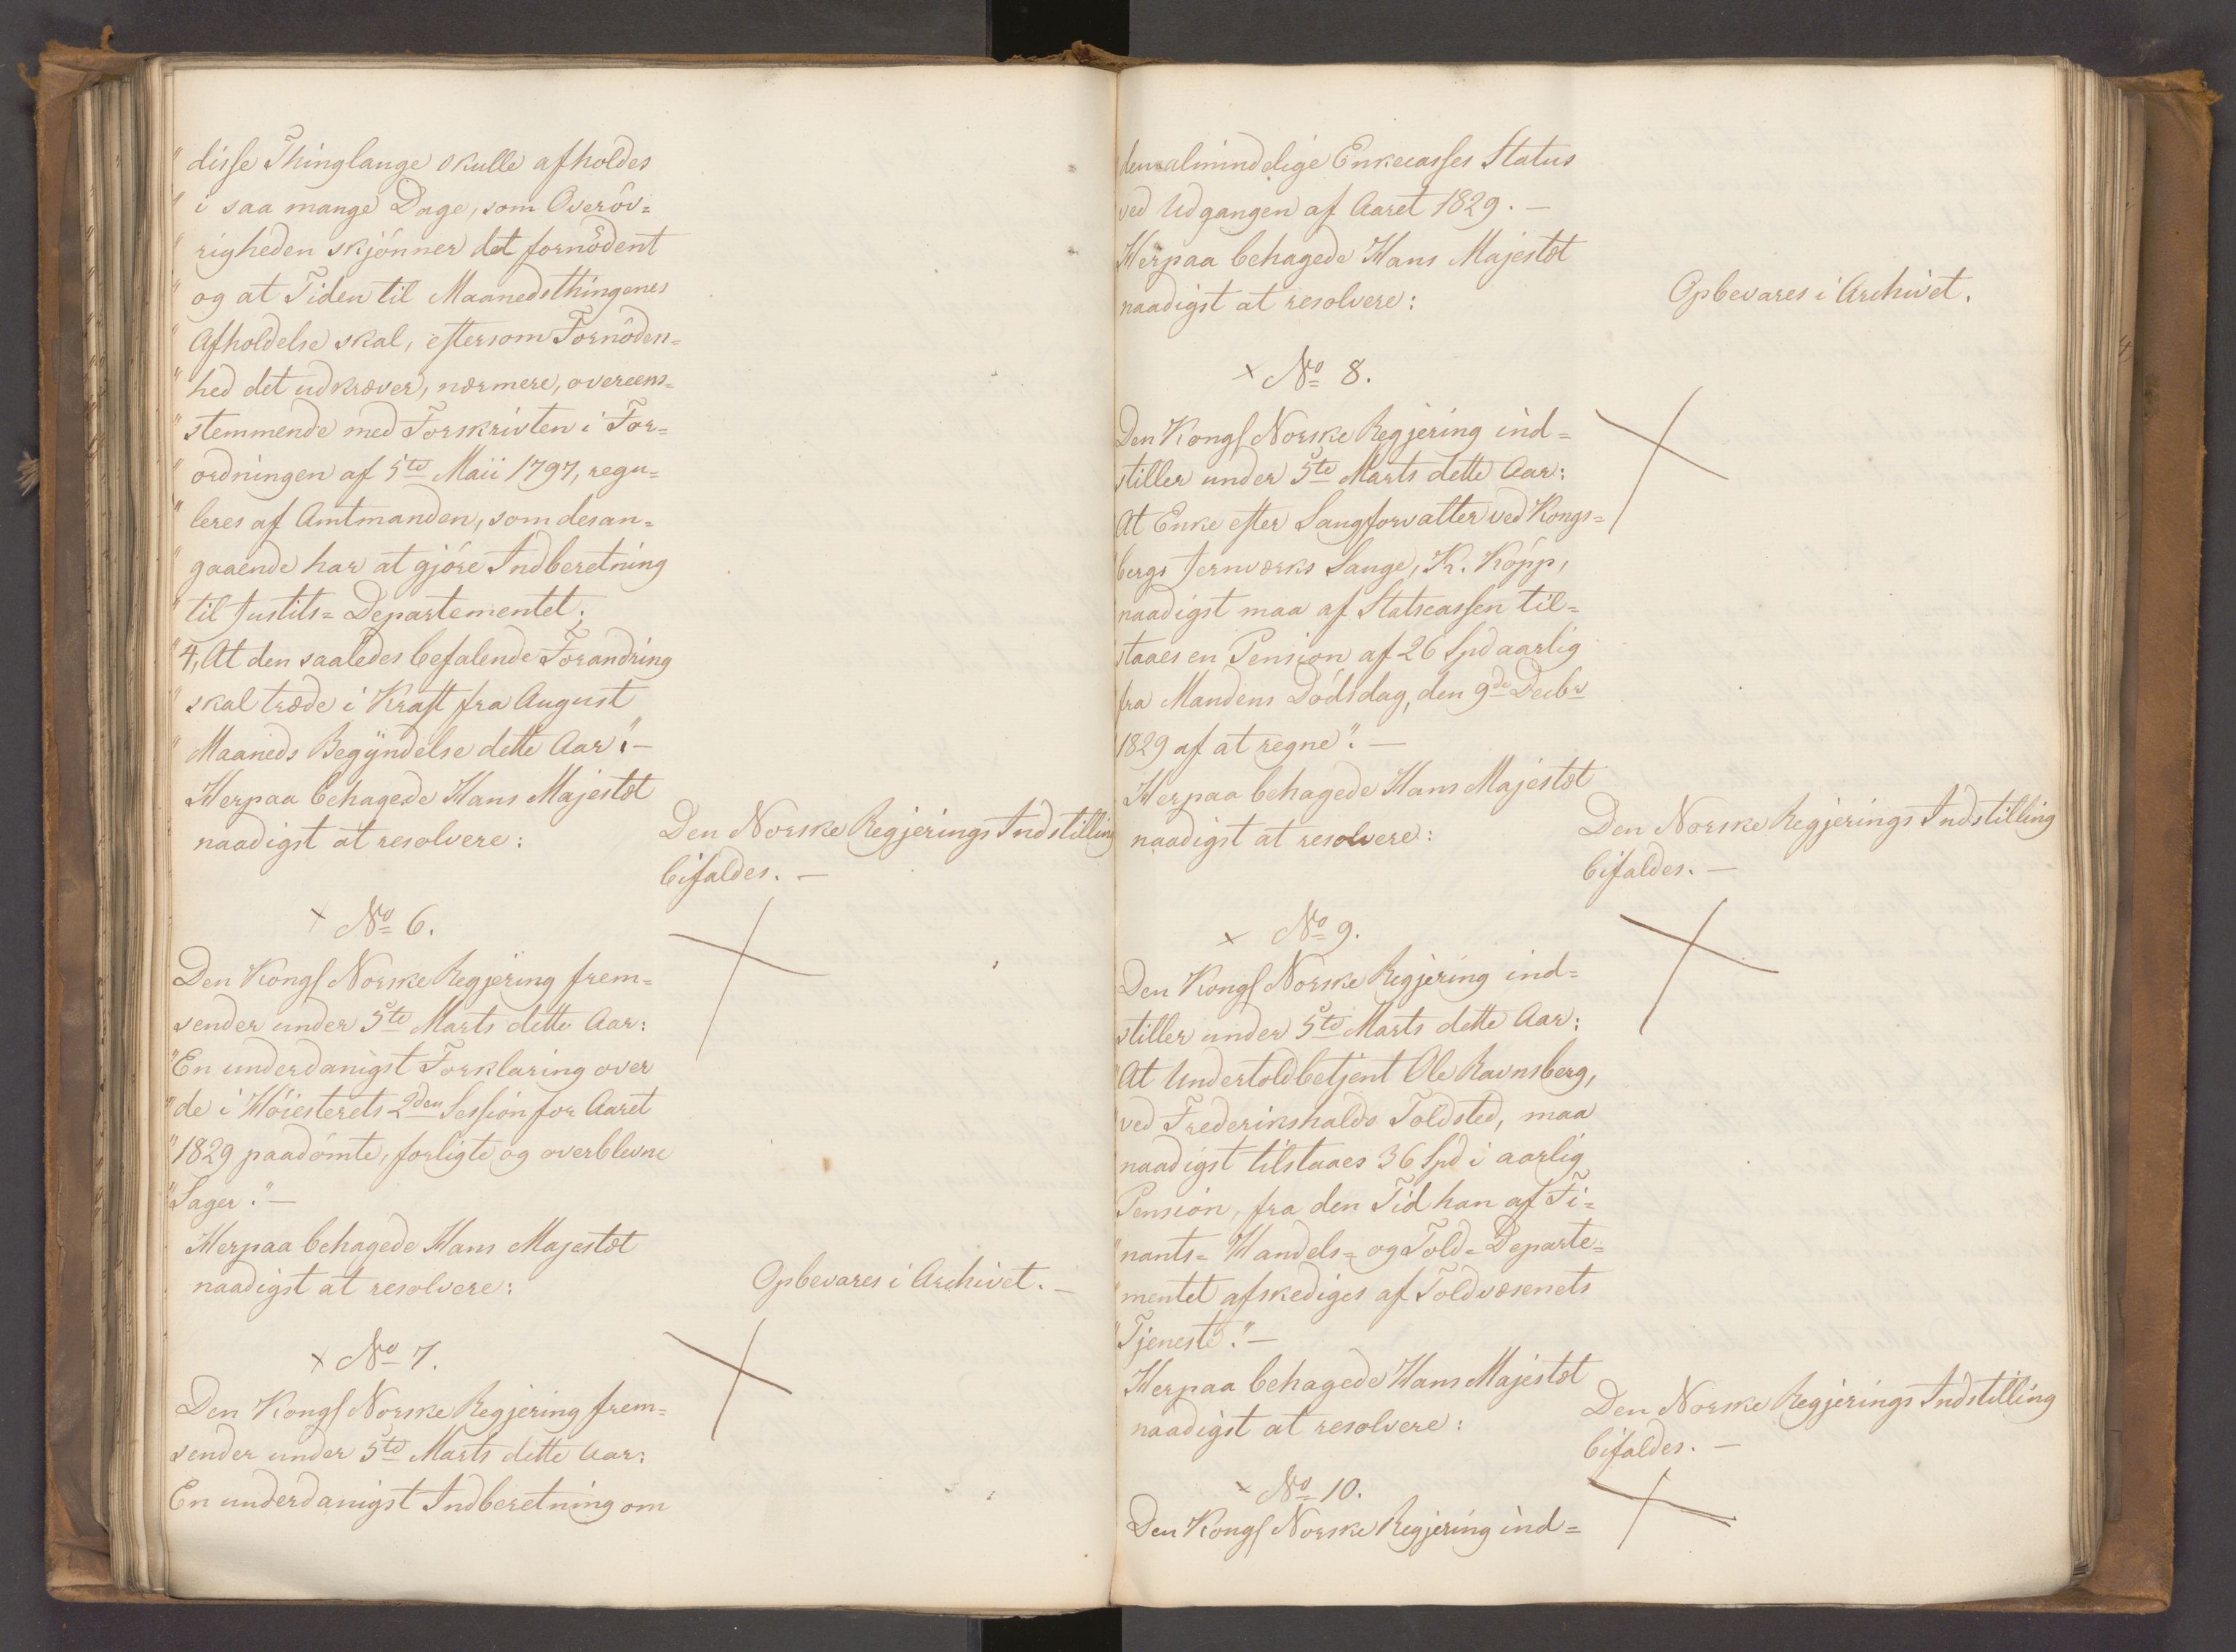 "disse Thinglauge skulle afholdes
"i saa mange Dage, som Overöv=
"righeden skjönner det fornödent
"og at Tiden til Maanedsthingenes
"Afholdelse skal, eftersom Fornöden=
"hed det udkræver, nærmere, overeens=
"stemmende med Forskrivten i For=
"ordningen af 5te Maii 1797, regu=
"leres af Amtmanden, som desan=
"gaaende har at gjöre Indberetning
"til Justits=Departementet;
"4, At den saaledes befalende Forandring
"skal træde i Kraft fra August
"Maaneds Begyndelse dette Aar." —
Herpaa behagede Hans Majestæt
naadigst at resolvere:
Den Norske Regjerings Indstilling
bifaldes. —
× No 6.
Den Kongl Norske Regjering frem=
sender under 5te Marts dette Aar:
"En underdanigst Forklaring over
"de i Höiesterets 2den Session for Aaret
"1829 paadömte, forligte og overblevne
"Sager." —
Herpaa behagede Hans Majestæt
naadigst at resolvere:
Opbevares i Archivet. —
× No 7.
Den Kongl Norske Regjering frem=
sender under 5te Marts dette Aar:
En underdanigst Indberetning om
den almindelige Enkecasses Status
ved Udgangen af Aaret 1829. —
Herpaa behagede Hans Majestæt
naadigst at resolvere:
Opbevares i Archivet.
× No 8.
Den Kongl Norske Regjering ind=
stiller under 5te Marts dette Aar:
At Enke efter Saugforvalter ved Kongs=
bergs Jernværks Sauge, K. Köpp,
naadigst maa af Statscassen til=
staaes en Pension af 26 Spd aarlig
fra Mandens Dödsdag, den 9de Decbr
1829 af at regne". —
Herpaa behagede Hans Majestæt
naadigst at resolvere:
Den Norske Regjerings Indstilling
bifaldes. —
× No 9.
Den Kongl Norske Regjering ind=
stiller under 5te Marts dette Aar:
"At Undertoldbetjent Ole Ravnsberg,
"ved Frederikshalds Toldsted, maa
naadigst tilstaaes 36 Spd i aarlig
Pension, fra den Tid han af Fi=
"nants= Handels= og Told=Departe=
"mentet afskediges af Toldvæsenets
"Tjeneste." —
Herpaa behagede Hans Majestæt
naadigst at resolvere:
Den Norske Regjerings Indstilling
bifaldes. —
× No 10.
Den Kongl Norske Regjering ind=